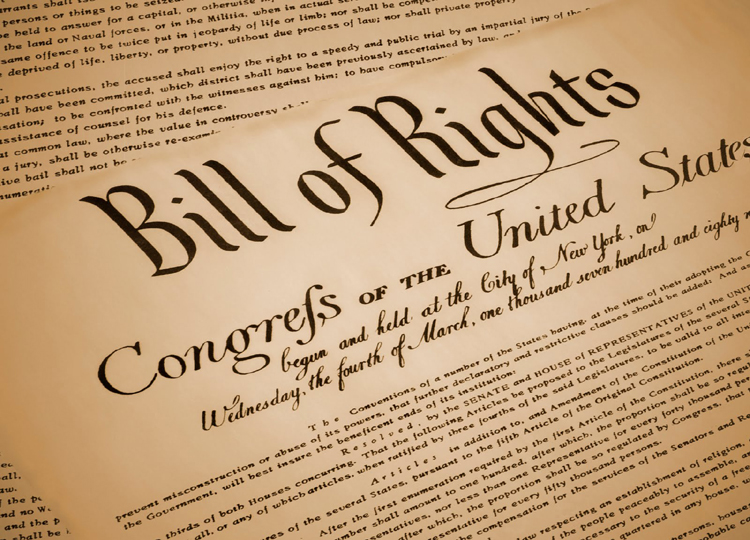 persons or things to be seized
be held to answer for a capital, or otherwise
the land or Naval forces, or in the Militia, when in actual
same offence to be twice put in jeopardy of life or limb; nor shall be
deprived of life, liberty, or property, without due process of law; nor shall private property
prosecutions, the accused shall enjoy the right to a speedy and public trial by an impartial jury of the
shall have been committed, which district shall have been previously ascertained by law, and
to be confronted with the witnesses against him; to have compulsory
assistance of counsel for his defence.
common law, where the value in controversy shall
a jury, shall be otherwise
bail shall not be
Bill of Rights
Congreſs OF THE United States
begun and held at the City of New York, on
Wednesday, the fourth of March, one thousand seven hundred and eighty
The Conventions of a number of the States having, at the time of their adopting the
prevent misconstruction or abuse of its powers, that further declaratory and restrictive clauses should be added: And
the Government, will best insure the beneficent ends of its institution:
Resolved, by the SENATE and HOUSE of REPRESENTATIVES of the
thirds of both Houses concurring. That the following Articles be proposed to the Legislatures of the several
all, or any of which articles, when ratified by three fourths of the said Legislatures, to be valid to all
Articles in addition to, and Amendment of the Constitution of the
of the several States, pursuant to the fifth Article of the Original Constitution.
After the first enumeration required by the first Article of the Constitution, there
number shall amount to one hundred, after which, the proportion shall be so
nor less than one Representative for every forty thousand
which, the proportion shall be so regulated by Congress, that
Representative for every fifty thousand persons.
the compensation for the services of the Senators and
law respecting an establishment of religion,
the people peaceably to assemble,
to the security of a
quartered in any house,